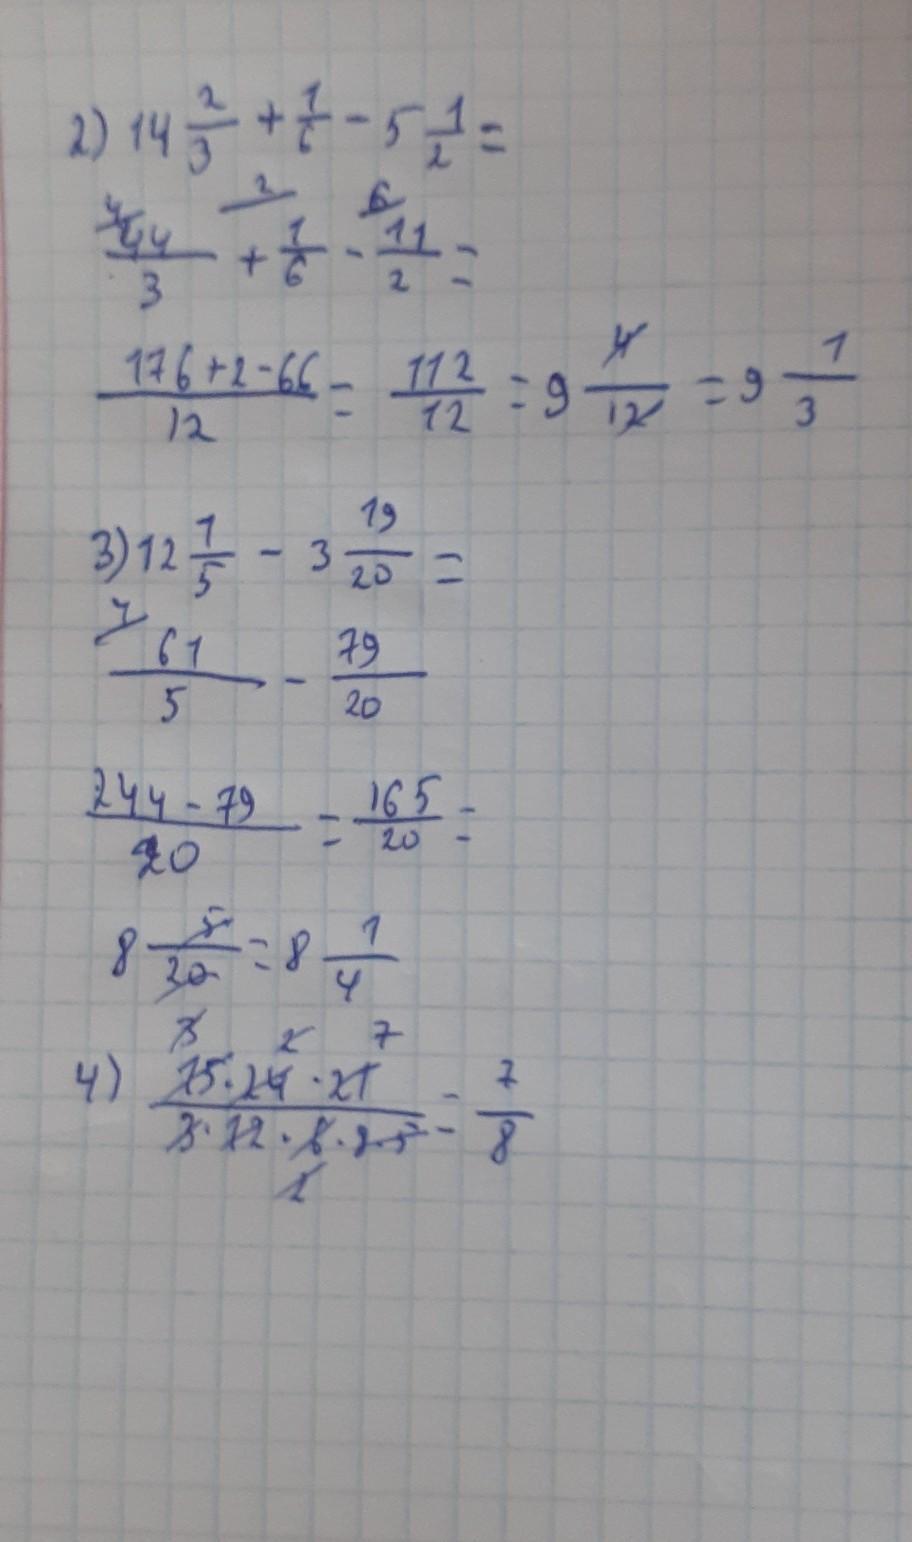 2) 14 2/3 + 1/6 - 5 1/2 =
4 2 6
44/3 + 1/6 - 11/2 =
(176+2-66)/12 = 112/12 = 9 4/12 = 9 1/3
3) 12 1/5 - 3 19/20 =
4
61/5 - 79/20
(244-79)/20 = 165/20 =
8 5/20 = 8 1/4
3 2 7
4) (15·24·21)/(3·12·6·8·5) = 7/8
1